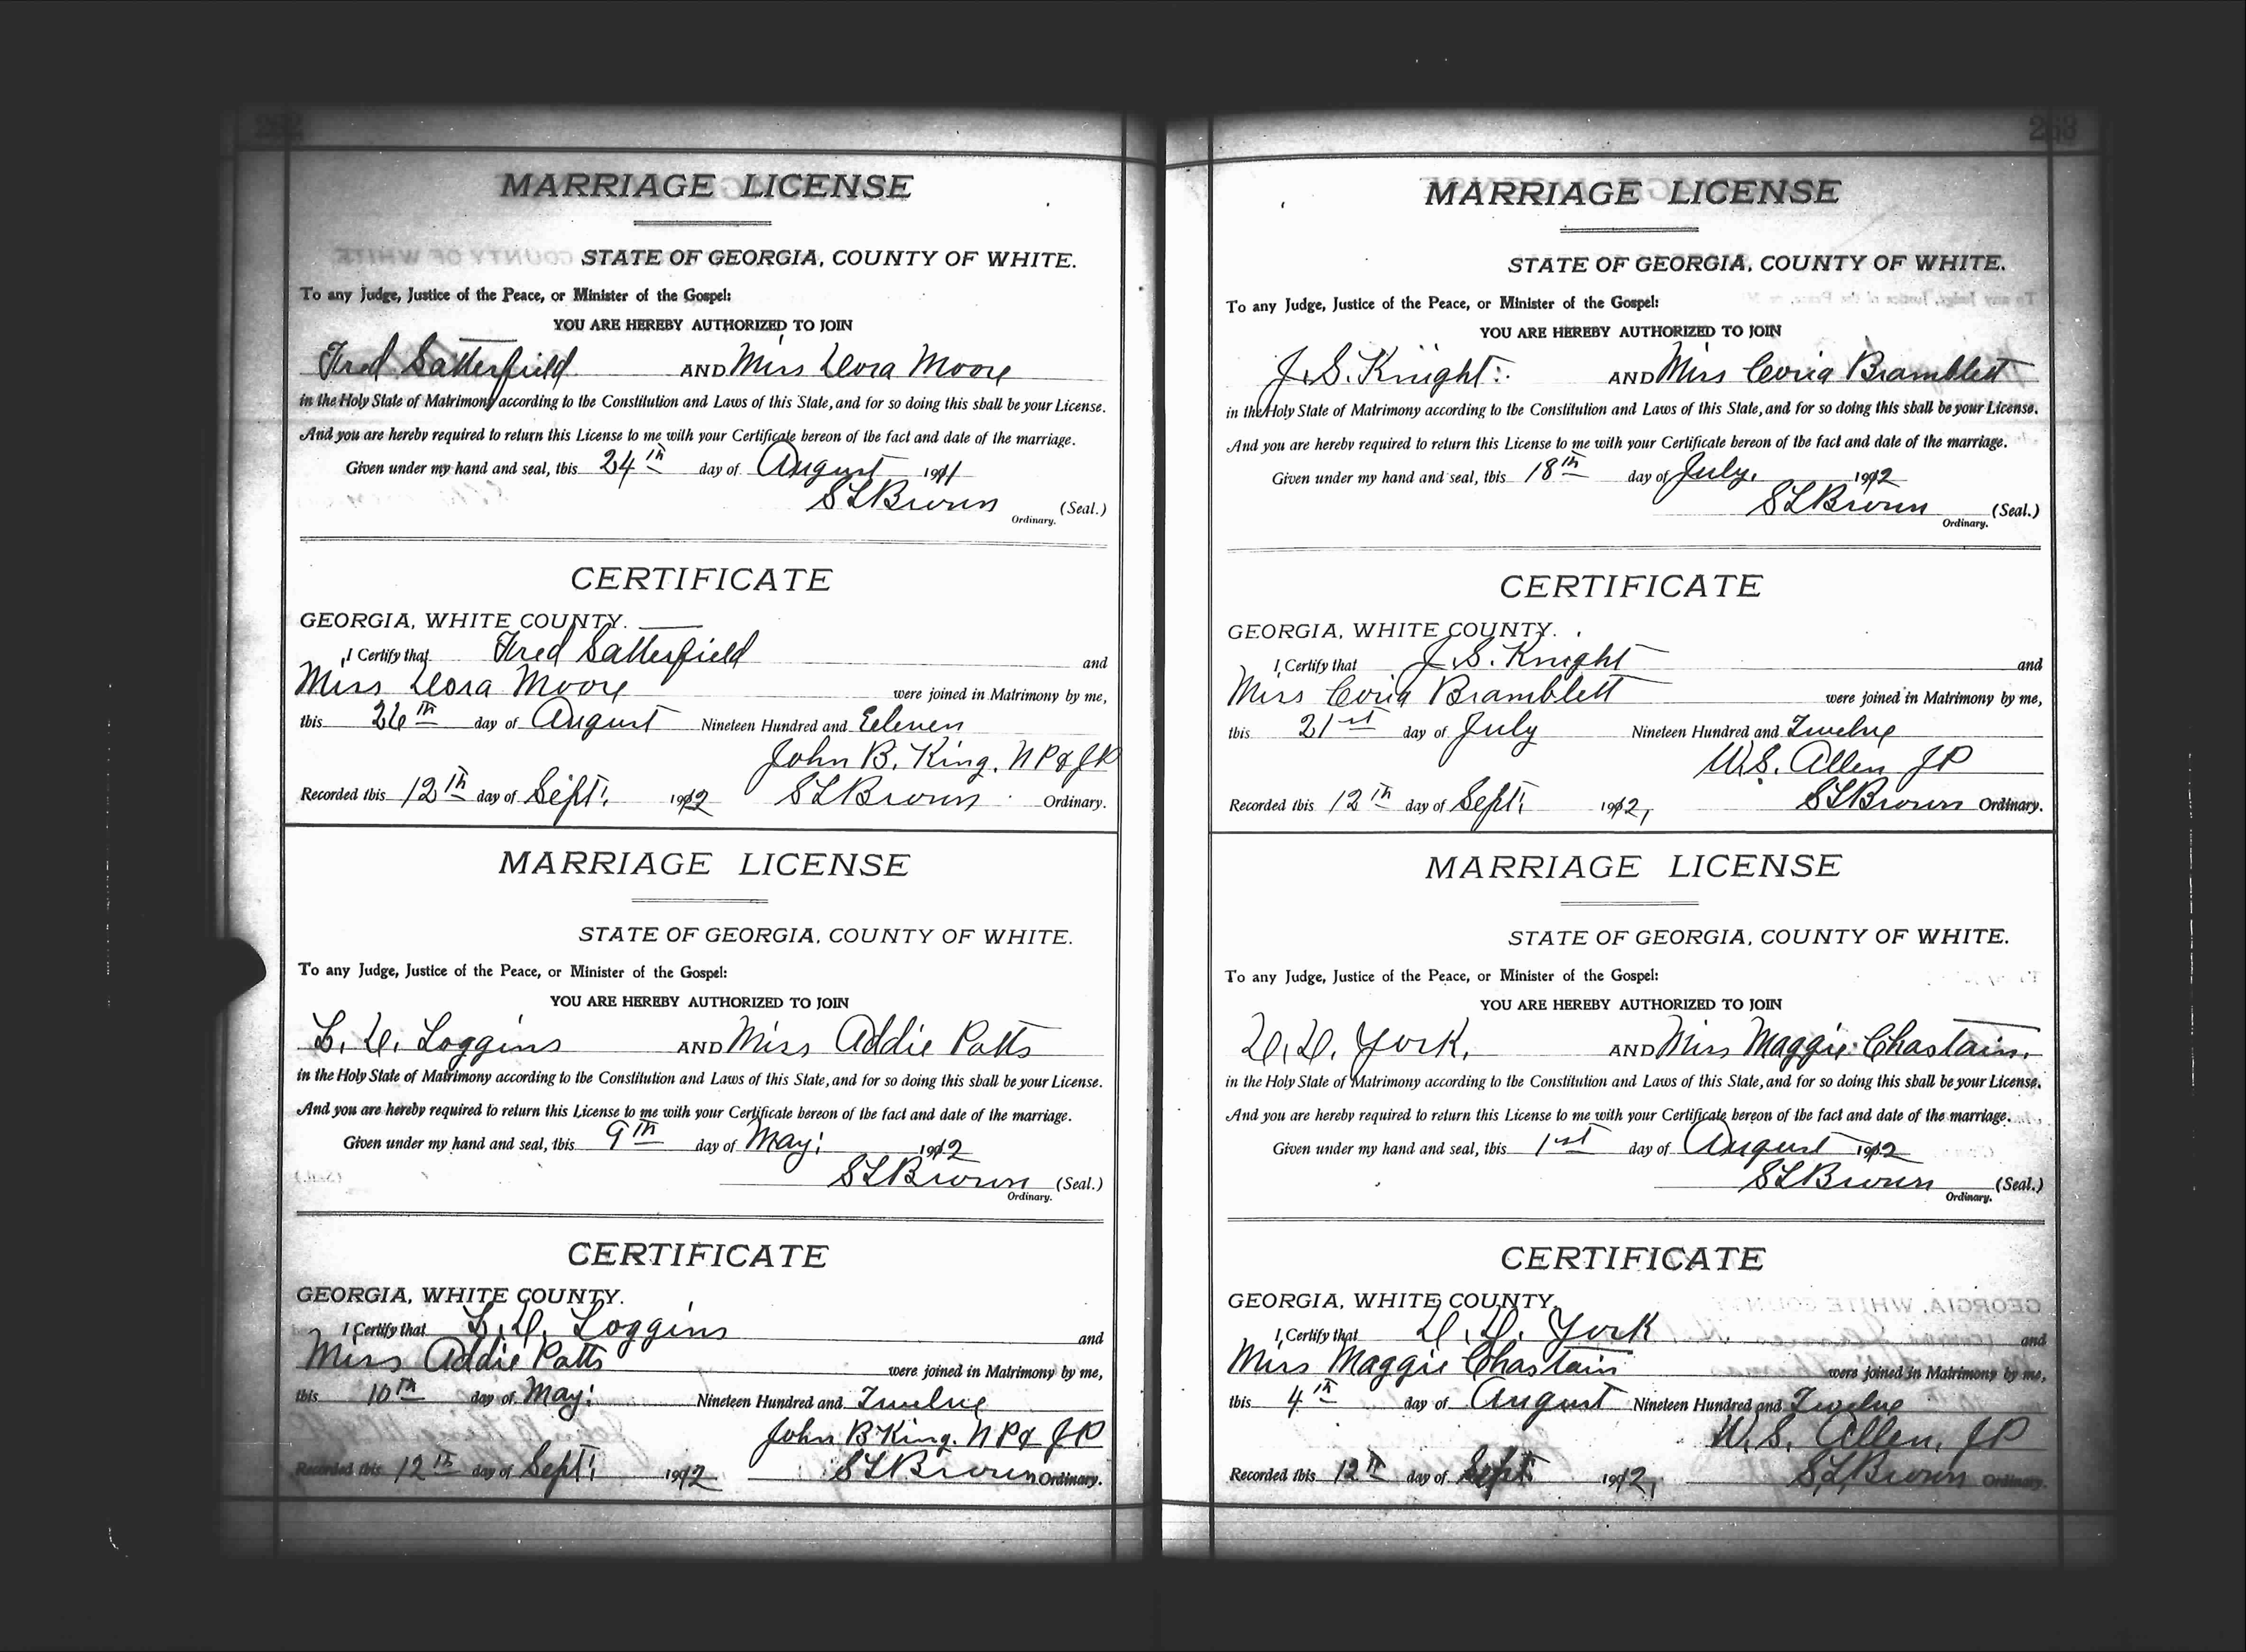 262
MARRIAGE LICENSE
STATE OF GEORGIA, COUNTY OF WHITE.
To any Judge, Justice of the Peace, or Minister of the Gospel:
YOU ARE HEREBY AUTHORIZED TO JOIN
Fred Satterfield AND Miss Leora Moore
in the Holy State of Matrimony according to the Constitution and Laws of this State, and for so doing this shall be your License.
And you are hereby required to return this License to me with your Certificate hereon of the fact and date of the marriage.
Given under my hand and seal, this 24th day of August 1911
S L Brown (Seal.)
Ordinary.
CERTIFICATE
GEORGIA, WHITE COUNTY.
I Certify that Fred Satterfield and
Miss Leora Moore were joined in Matrimony by me,
this 26th day of August Nineteen Hundred and Eleven
John B. King, N P & J P
Recorded this 12th day of Sept. 1912 S L Brown Ordinary.
MARRIAGE LICENSE
STATE OF GEORGIA, COUNTY OF WHITE.
To any Judge, Justice of the Peace, or Minister of the Gospel:
YOU ARE HEREBY AUTHORIZED TO JOIN
Loggins AND Miss Addie Potts
in the Holy State of Matrimony according to the Constitution and Laws of this State, and for so doing this shall be your License.
And you are hereby required to return this License to me with your Certificate hereon of the fact and date of the marriage.
Given under my hand and seal, this 9th day of May 1912
S L Brown (Seal.)
Ordinary.
CERTIFICATE
GEORGIA, WHITE COUNTY.
I Certify that Loggins and
Miss Addie Potts were joined in Matrimony by me,
this 10th day of May Nineteen Hundred and Twelve
John B King, N P & J P
Recorded this 12th day of Sept. 1912 S L Brown Ordinary.
263
MARRIAGE LICENSE
STATE OF GEORGIA, COUNTY OF WHITE.
To any Judge, Justice of the Peace, or Minister of the Gospel:
YOU ARE HEREBY AUTHORIZED TO JOIN
J. S. Knight AND Miss Bramblett
in the Holy State of Matrimony according to the Constitution and Laws of this State, and for so doing this shall be your License.
And you are hereby required to return this License to me with your Certificate hereon of the fact and date of the marriage.
Given under my hand and seal, this 18th day of July, 1912
S L Brown (Seal.)
Ordinary.
CERTIFICATE
GEORGIA, WHITE COUNTY.
I, Certify that J. S. Knight and
Miss Bramblett were joined in Matrimony by me,
this 21st day of July Nineteen Hundred and Twelve
W. S. Allen J P
Recorded this 12th day of Sept. 1912, S L Brown Ordinary.
MARRIAGE LICENSE
STATE OF GEORGIA, COUNTY OF WHITE.
To any Judge, Justice of the Peace, or Minister of the Gospel:
YOU ARE HEREBY AUTHORIZED TO JOIN
York, AND Miss Maggie Chastain.
in the Holy State of Matrimony according to the Constitution and Laws of this State, and for so doing this shall be your License.
And you are hereby required to return this License to me with your Certificate hereon of the fact and date of the marriage.
Given under my hand and seal, this 1st day of August 1912
S L Brown (Seal.)
Ordinary.
CERTIFICATE
GEORGIA, WHITE COUNTY.
I, Certify that York and
Miss Maggie Chastain were joined in Matrimony by me,
this 4th day of August Nineteen Hundred and Twelve
W. S. Allen, J P
Recorded this 12th day of Sept. 1912, S. L. Brown Ordinary.